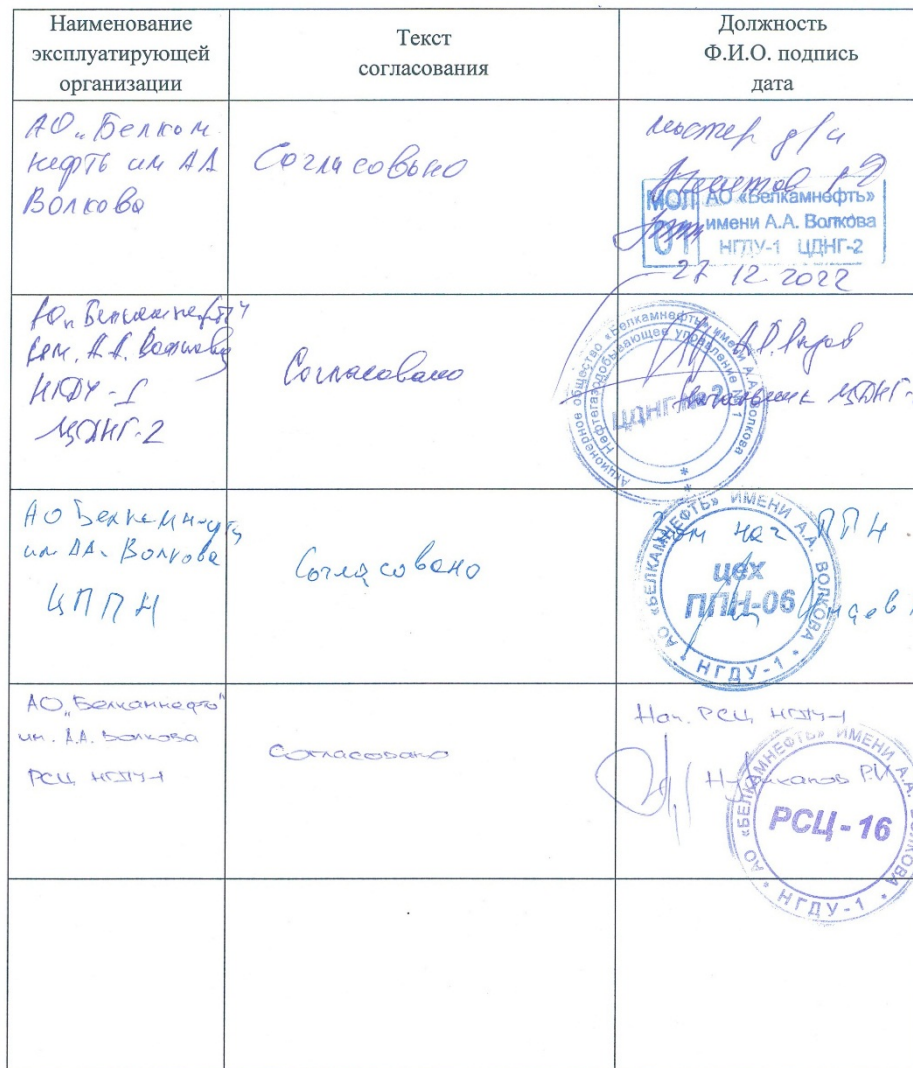 Наименование
эксплуатирующей
организации
Текст
согласования
Должность
Ф.И.О. подпись
дата
АО „Белком
нефть им АА
Волкова
Согласовыно
мастер д/н
МОЛ
01
АО «Белкамнефть»
имени А.А. Волкова
НГДУ-1 ЦДНГ-2
27 12 2022
АО „Белкамнефть"
им. А.А. Волкова
НГДУ-1
ЦДНГ-2
Согласовано
Начальник ЦДНГ-
Акционерное общество «Белкамнефть» имени А.А. Волкова
Нефтегазодобывающее управление № 1
ЦДНГ № 2
АО Белкамнефть
им АА. Волкова
ЦППН
Согласовано
Зам нач ППН
АО «БЕЛКАМНЕФТЬ» ИМЕНИ А.А. ВОЛКОВА
цех
ППН-06
НГДУ-1
АО „Белкамнефть"
им. А.А. Волкова
РСЦ НГДУ-1
Согласовано
Нач. РСЦ НГДУ-1
Р.И.
АО «БЕЛКАМНЕФТЬ» ИМЕНИ А.А. ВОЛКОВА
РСЦ-16
НГДУ-1